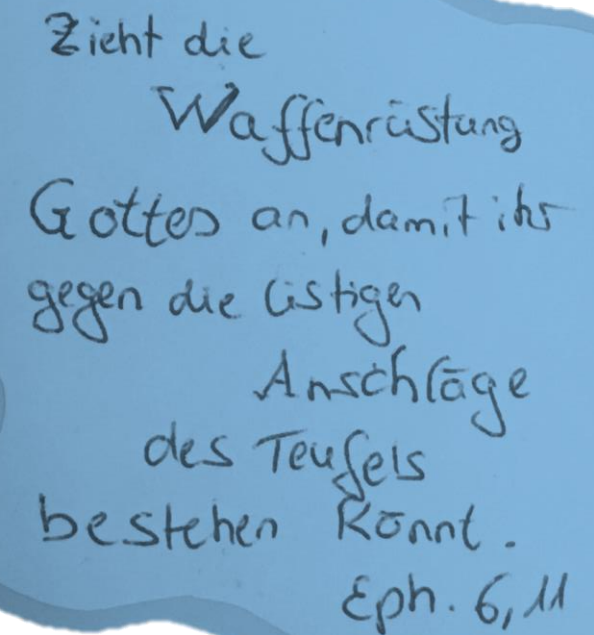 Zieht die
Waffenrüstung
Gottes an, damit ihr
gegen die listigen
Anschläge
des Teufels
bestehen könnt.
Eph. 6,11